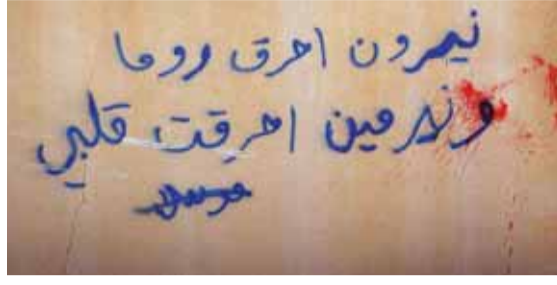 نيرون احرق روما
ونرمين احرقت قلبي